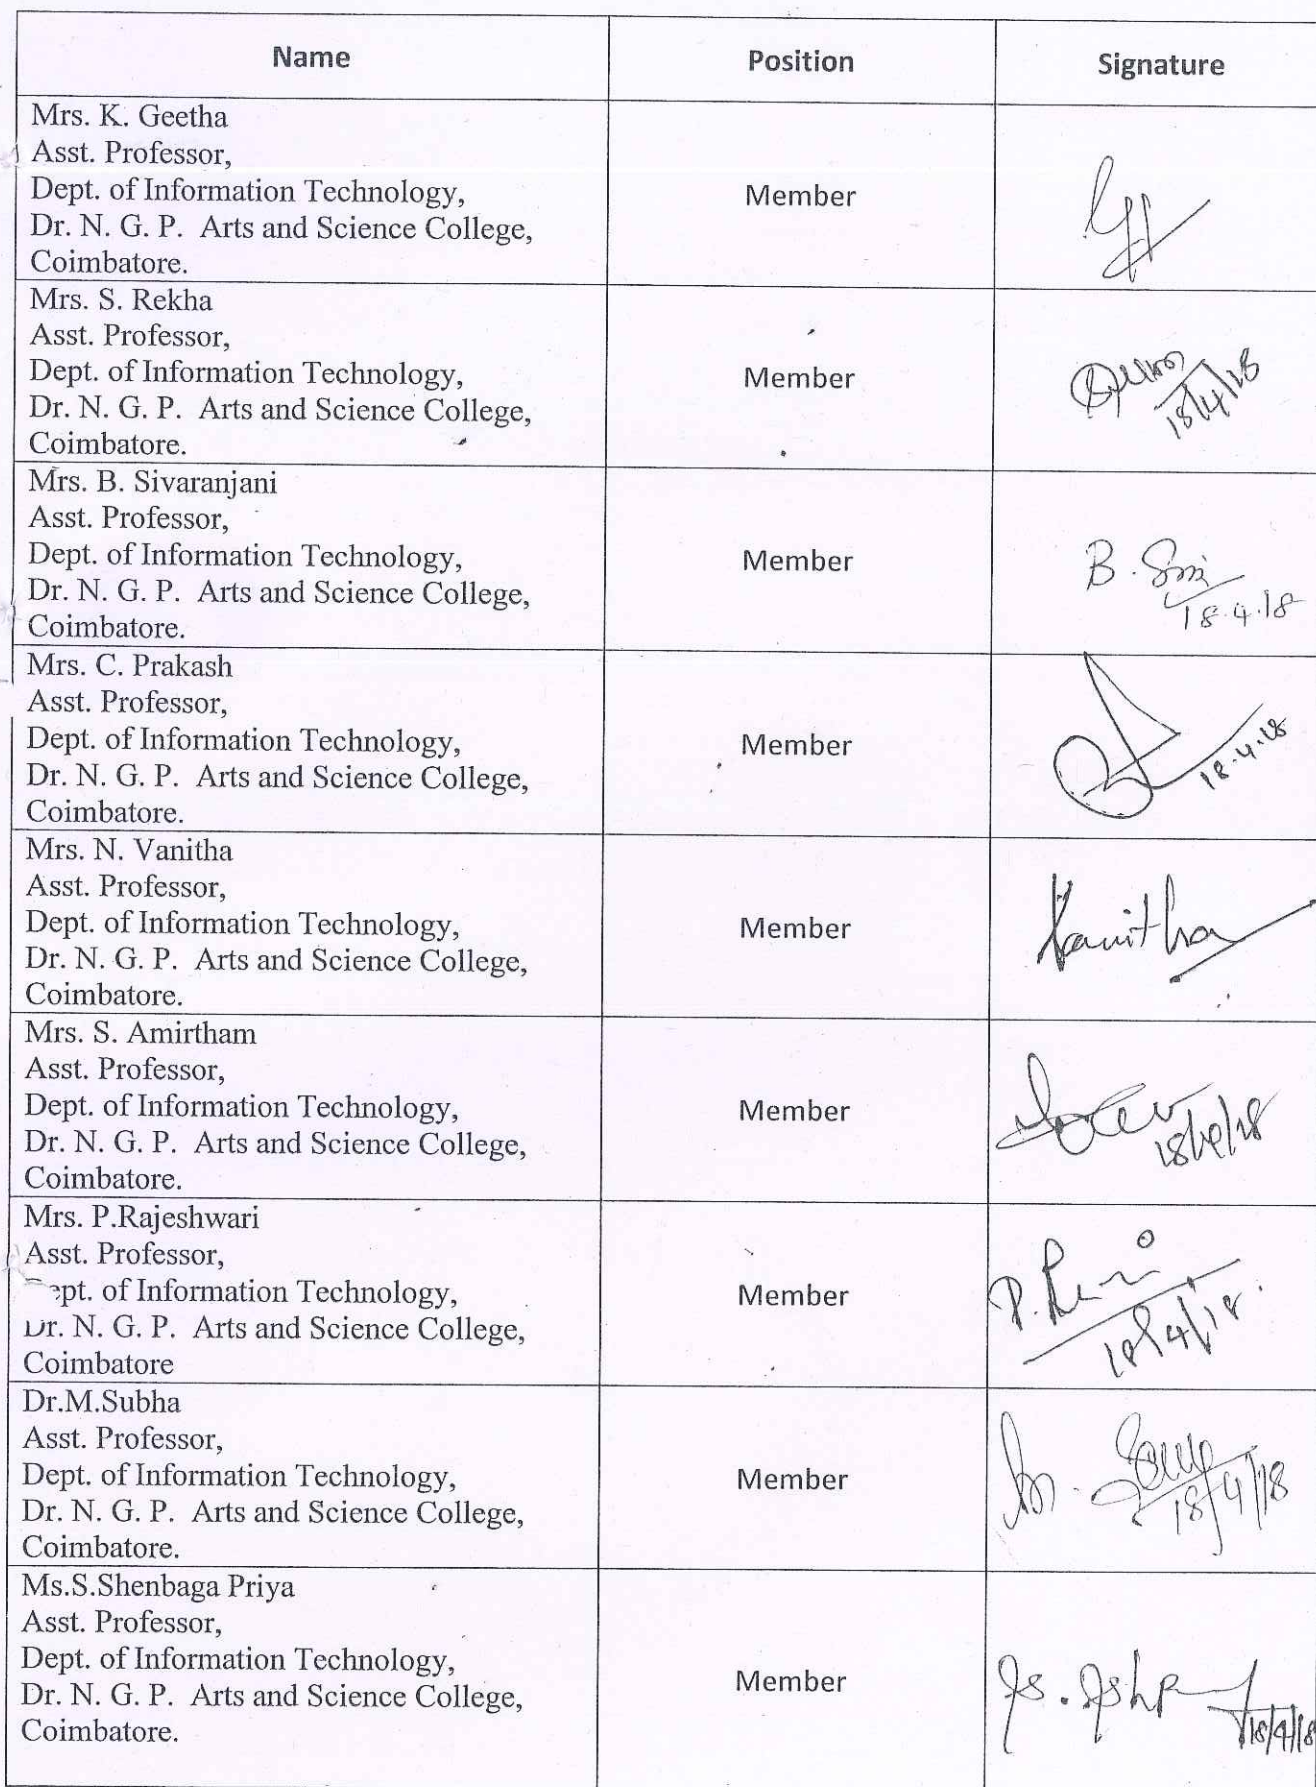 Name Position Signature
Mrs. K. Geetha
Asst. Professor,
Dept. of Information Technology,
Dr. N. G. P. Arts and Science College,
Coimbatore.
Member
Mrs. S. Rekha
Asst. Professor,
Dept. of Information Technology,
Dr. N. G. P. Arts and Science College,
Coimbatore.
Member
18/4/18
Mrs. B. Sivaranjani
Asst. Professor,
Dept. of Information Technology,
Dr. N. G. P. Arts and Science College,
Coimbatore.
Member
B.
18.4.18
Mrs. C. Prakash
Asst. Professor,
Dept. of Information Technology,
Dr. N. G. P. Arts and Science College,
Coimbatore.
Member
18.4.18
Mrs. N. Vanitha
Asst. Professor,
Dept. of Information Technology,
Dr. N. G. P. Arts and Science College,
Coimbatore.
Member
Vanitha
Mrs. S. Amirtham
Asst. Professor,
Dept. of Information Technology,
Dr. N. G. P. Arts and Science College,
Coimbatore.
Member
Mrs. P.Rajeshwari
Asst. Professor,
Dept. of Information Technology,
Dr. N. G. P. Arts and Science College,
Coimbatore
Member
P.
18/4/18.
Dr.M.Subha
Asst. Professor,
Dept. of Information Technology,
Dr. N. G. P. Arts and Science College,
Coimbatore.
Member
18/4/18
Ms.S.Shenbaga Priya
Asst. Professor,
Dept. of Information Technology,
Dr. N. G. P. Arts and Science College,
Coimbatore.
Member
18/4/18